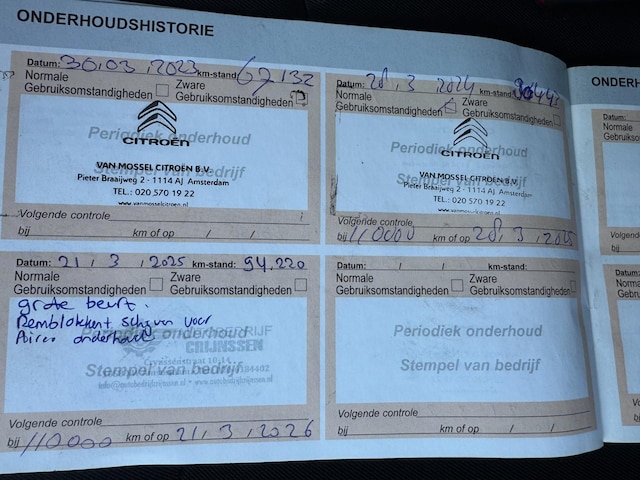 ONDERHOUDSHISTORIE
Datum: 30,03,2023 km-stand: 67,132
Normale Gebruiksomstandigheden
Zware Gebruiksomstandigheden
Periodiek onderhoud
CITROËN
VAN MOSSEL CITROËN B.V.
Stempel van bedrijf
Pieter Braaijweg 2 - 1114 AJ Amsterdam
TEL.: 020 570 19 22
www.vanmosselcitroen.nl
Volgende controle
bij km of op / /
Datum: 28,3,2024 km-stand:
Normale Gebruiksomstandigheden
Zware Gebruiksomstandigheden
Periodiek onderhoud
CITROËN
VAN MOSSEL CITROËN B.V.
Stempel van bedrijf
Pieter Braaijweg 2 - 1114 AJ Amsterdam
TEL.: 020 570 19 22
www.vanmosselcitroen.nl
Volgende controle
bij 110000 km of op 28,3,2025
Datum: 21,3,2025 km-stand: 94.220
Normale Gebruiksomstandigheden
Zware Gebruiksomstandigheden
grote beurt.
Remblokken schijven voor
Airco onderhoud
Periodiek onderhoud
CRIJNSSEN
Stempel van bedrijf
Volgende controle
bij 110000 km of op 21,3,2026
Datum: / / km-stand:
Normale Gebruiksomstandigheden
Zware Gebruiksomstandigheden
Periodiek onderhoud
Stempel van bedrijf
Volgende controle
bij km of op / /
ONDERH
Datum:
Normale
Gebruiksom
Volgende
bij
Datum:
Normale
Gebruik
Volge
bij